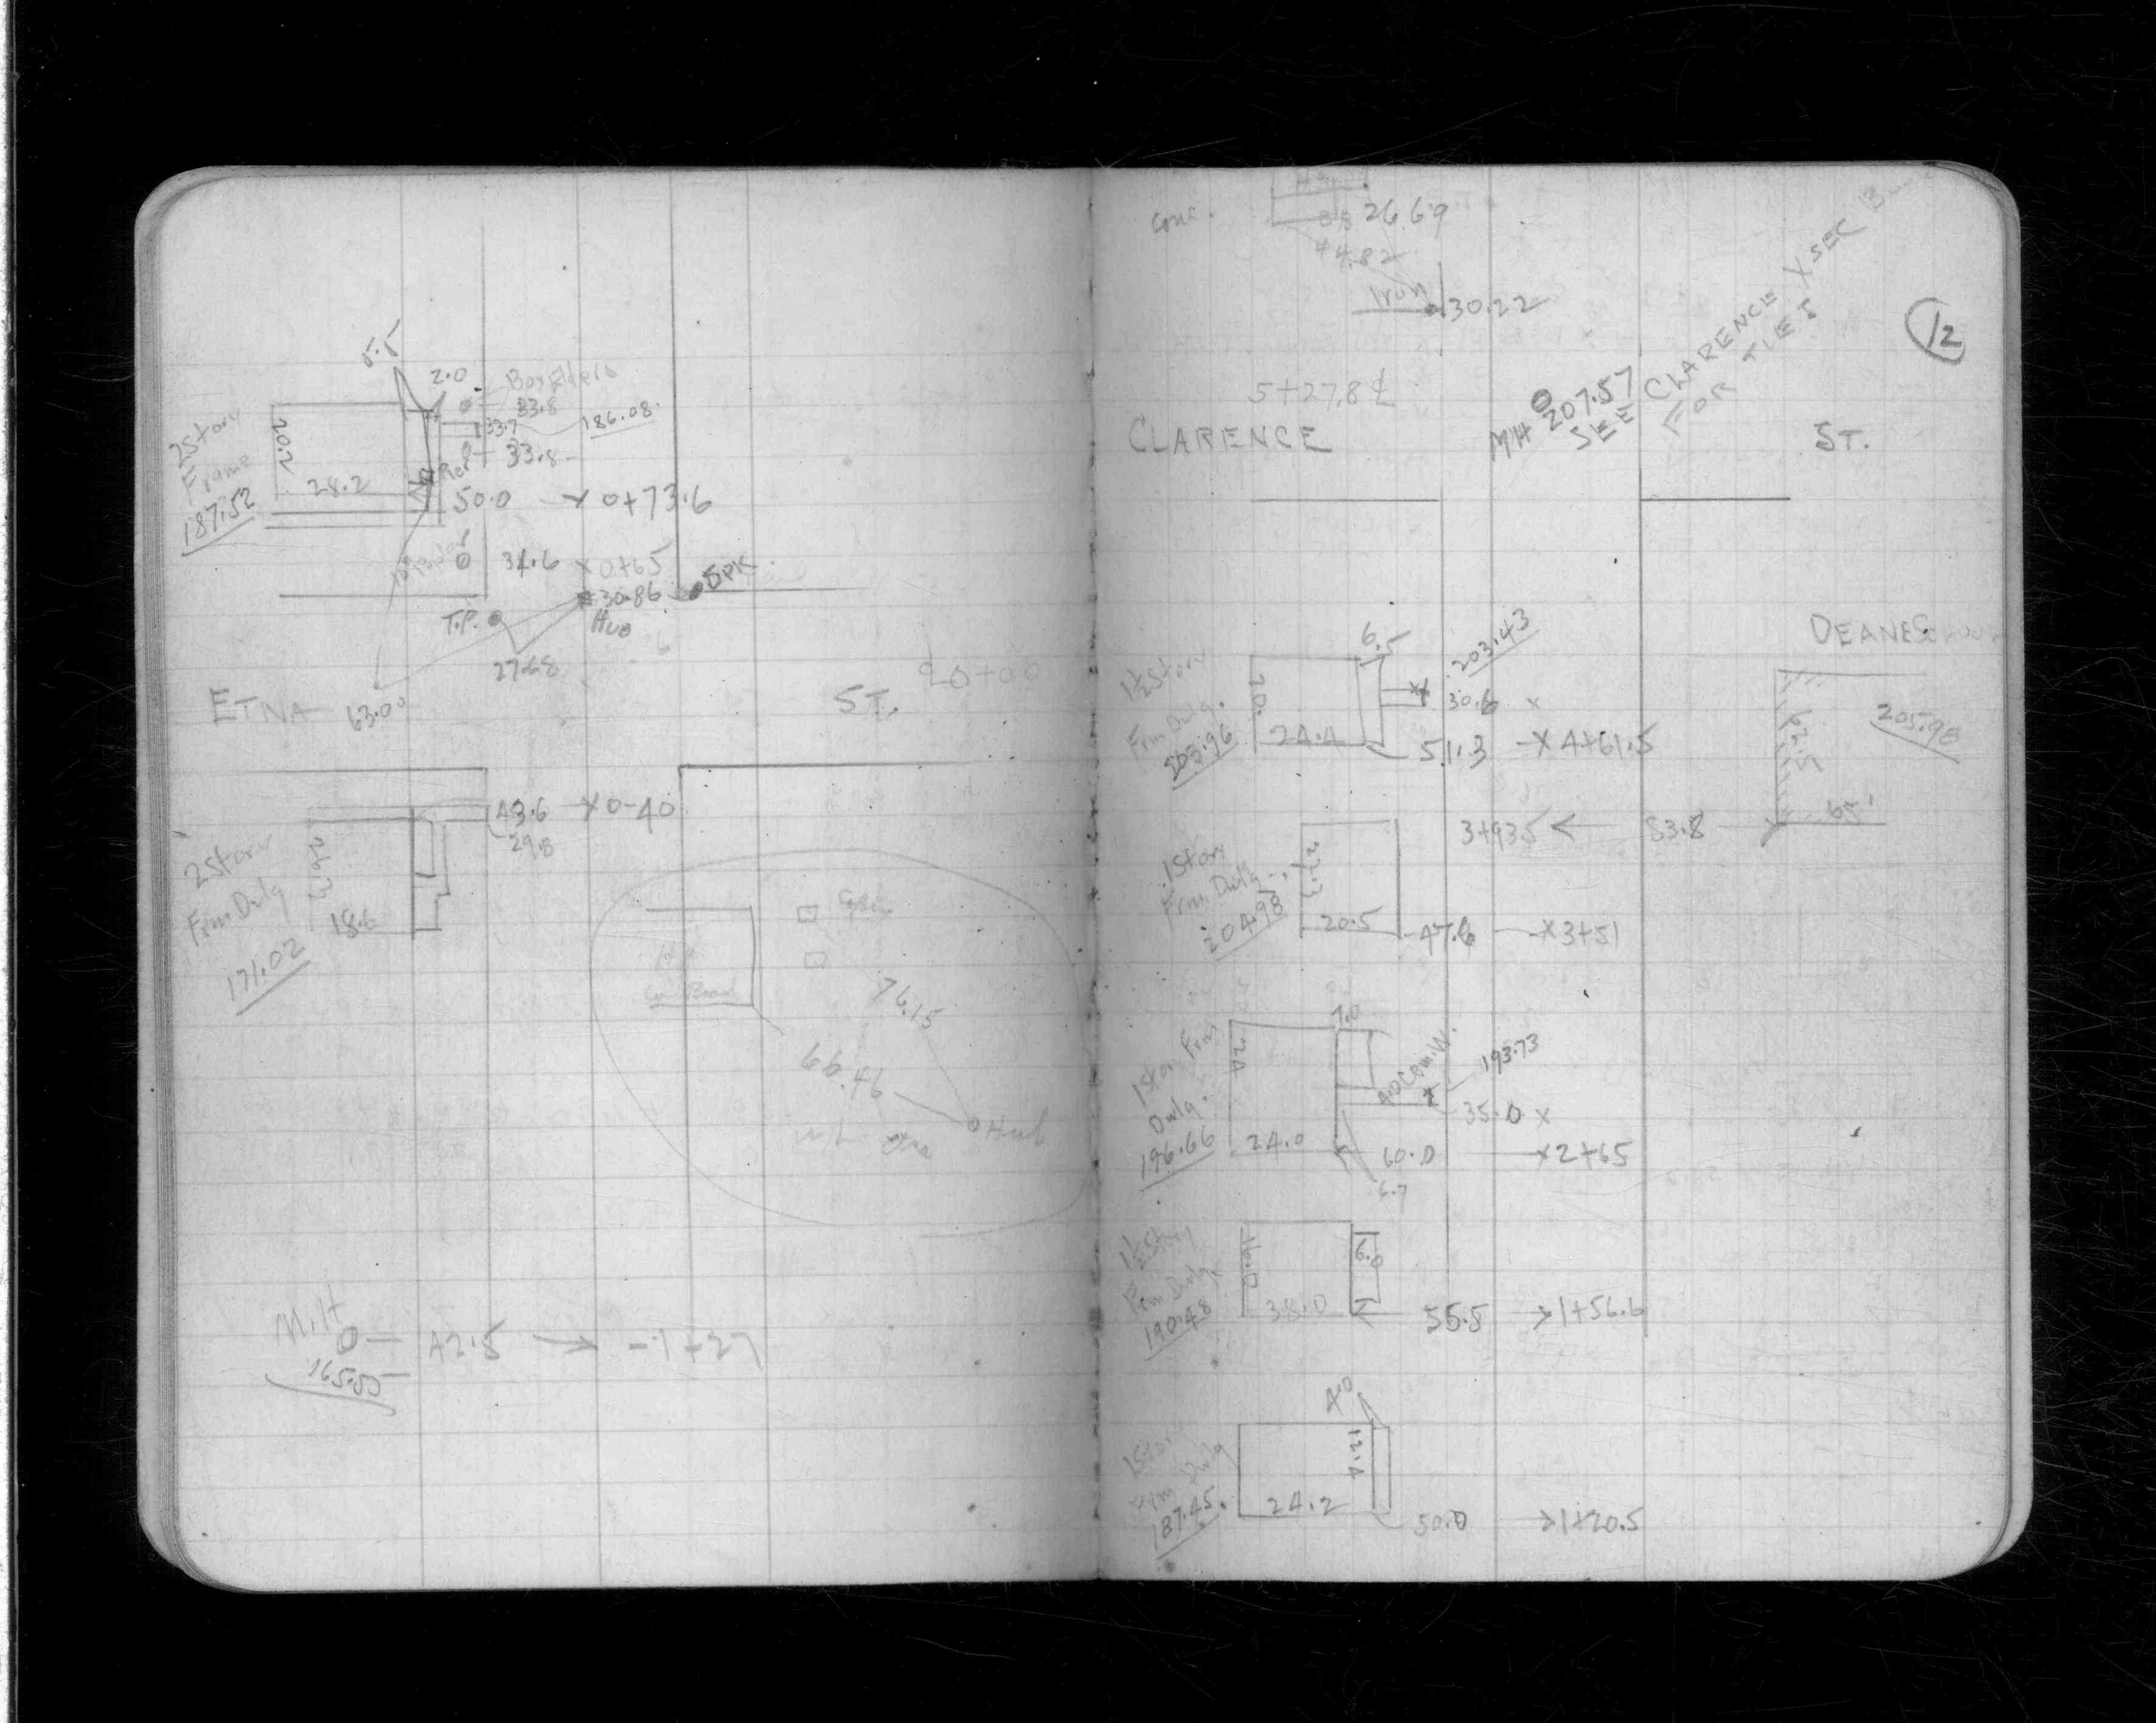 5.5
2.0
Box Elders
33.8
186.08
33.7
33.8
2 Story
Frame
187.52
20.2
28.2
50.0 x 0+73.6
34.6 x 0+65
30.86
Spk
T.P.
Hub
27.68
63.00
ETNA ST. 0+00
43.6 x 0-40
29.8
2 Story
Frm Dwlg
171.02
18.6
76.15
66.46
Hub
M.H
42.5 → -1+27
165.50
Conc.
26.69
44.82
Iron
30.22
12
5+27.8 ℄
CLARENCE ST.
MH 207.57
SEE CLARENCE X SEC
FOR TIES
DEANE SCHOOL
205.98
62.5
65'
1½ Story
Frm Dwlg.
203.96
20.
24.4
6.5
203.43
30.6 x
51.3 x 4+61.5
3+93.5 ← 83.8 →
1 Story
Frm. Dwlg.
204.98
22.3
20.5
47.6 x 3+51
1 Story Frm
Dwlg.
196.66
24.0
7.0
193.73
35.0 x
60.0 x 2+65
6.7
1½ Story
Frm Dwlg.
190.48
16.0
38.0
6.0
55.8 → 1+56.6
4.0
1 Story
Frm Dwlg
187.45
12.4
24.2
50.0 → 1+20.5